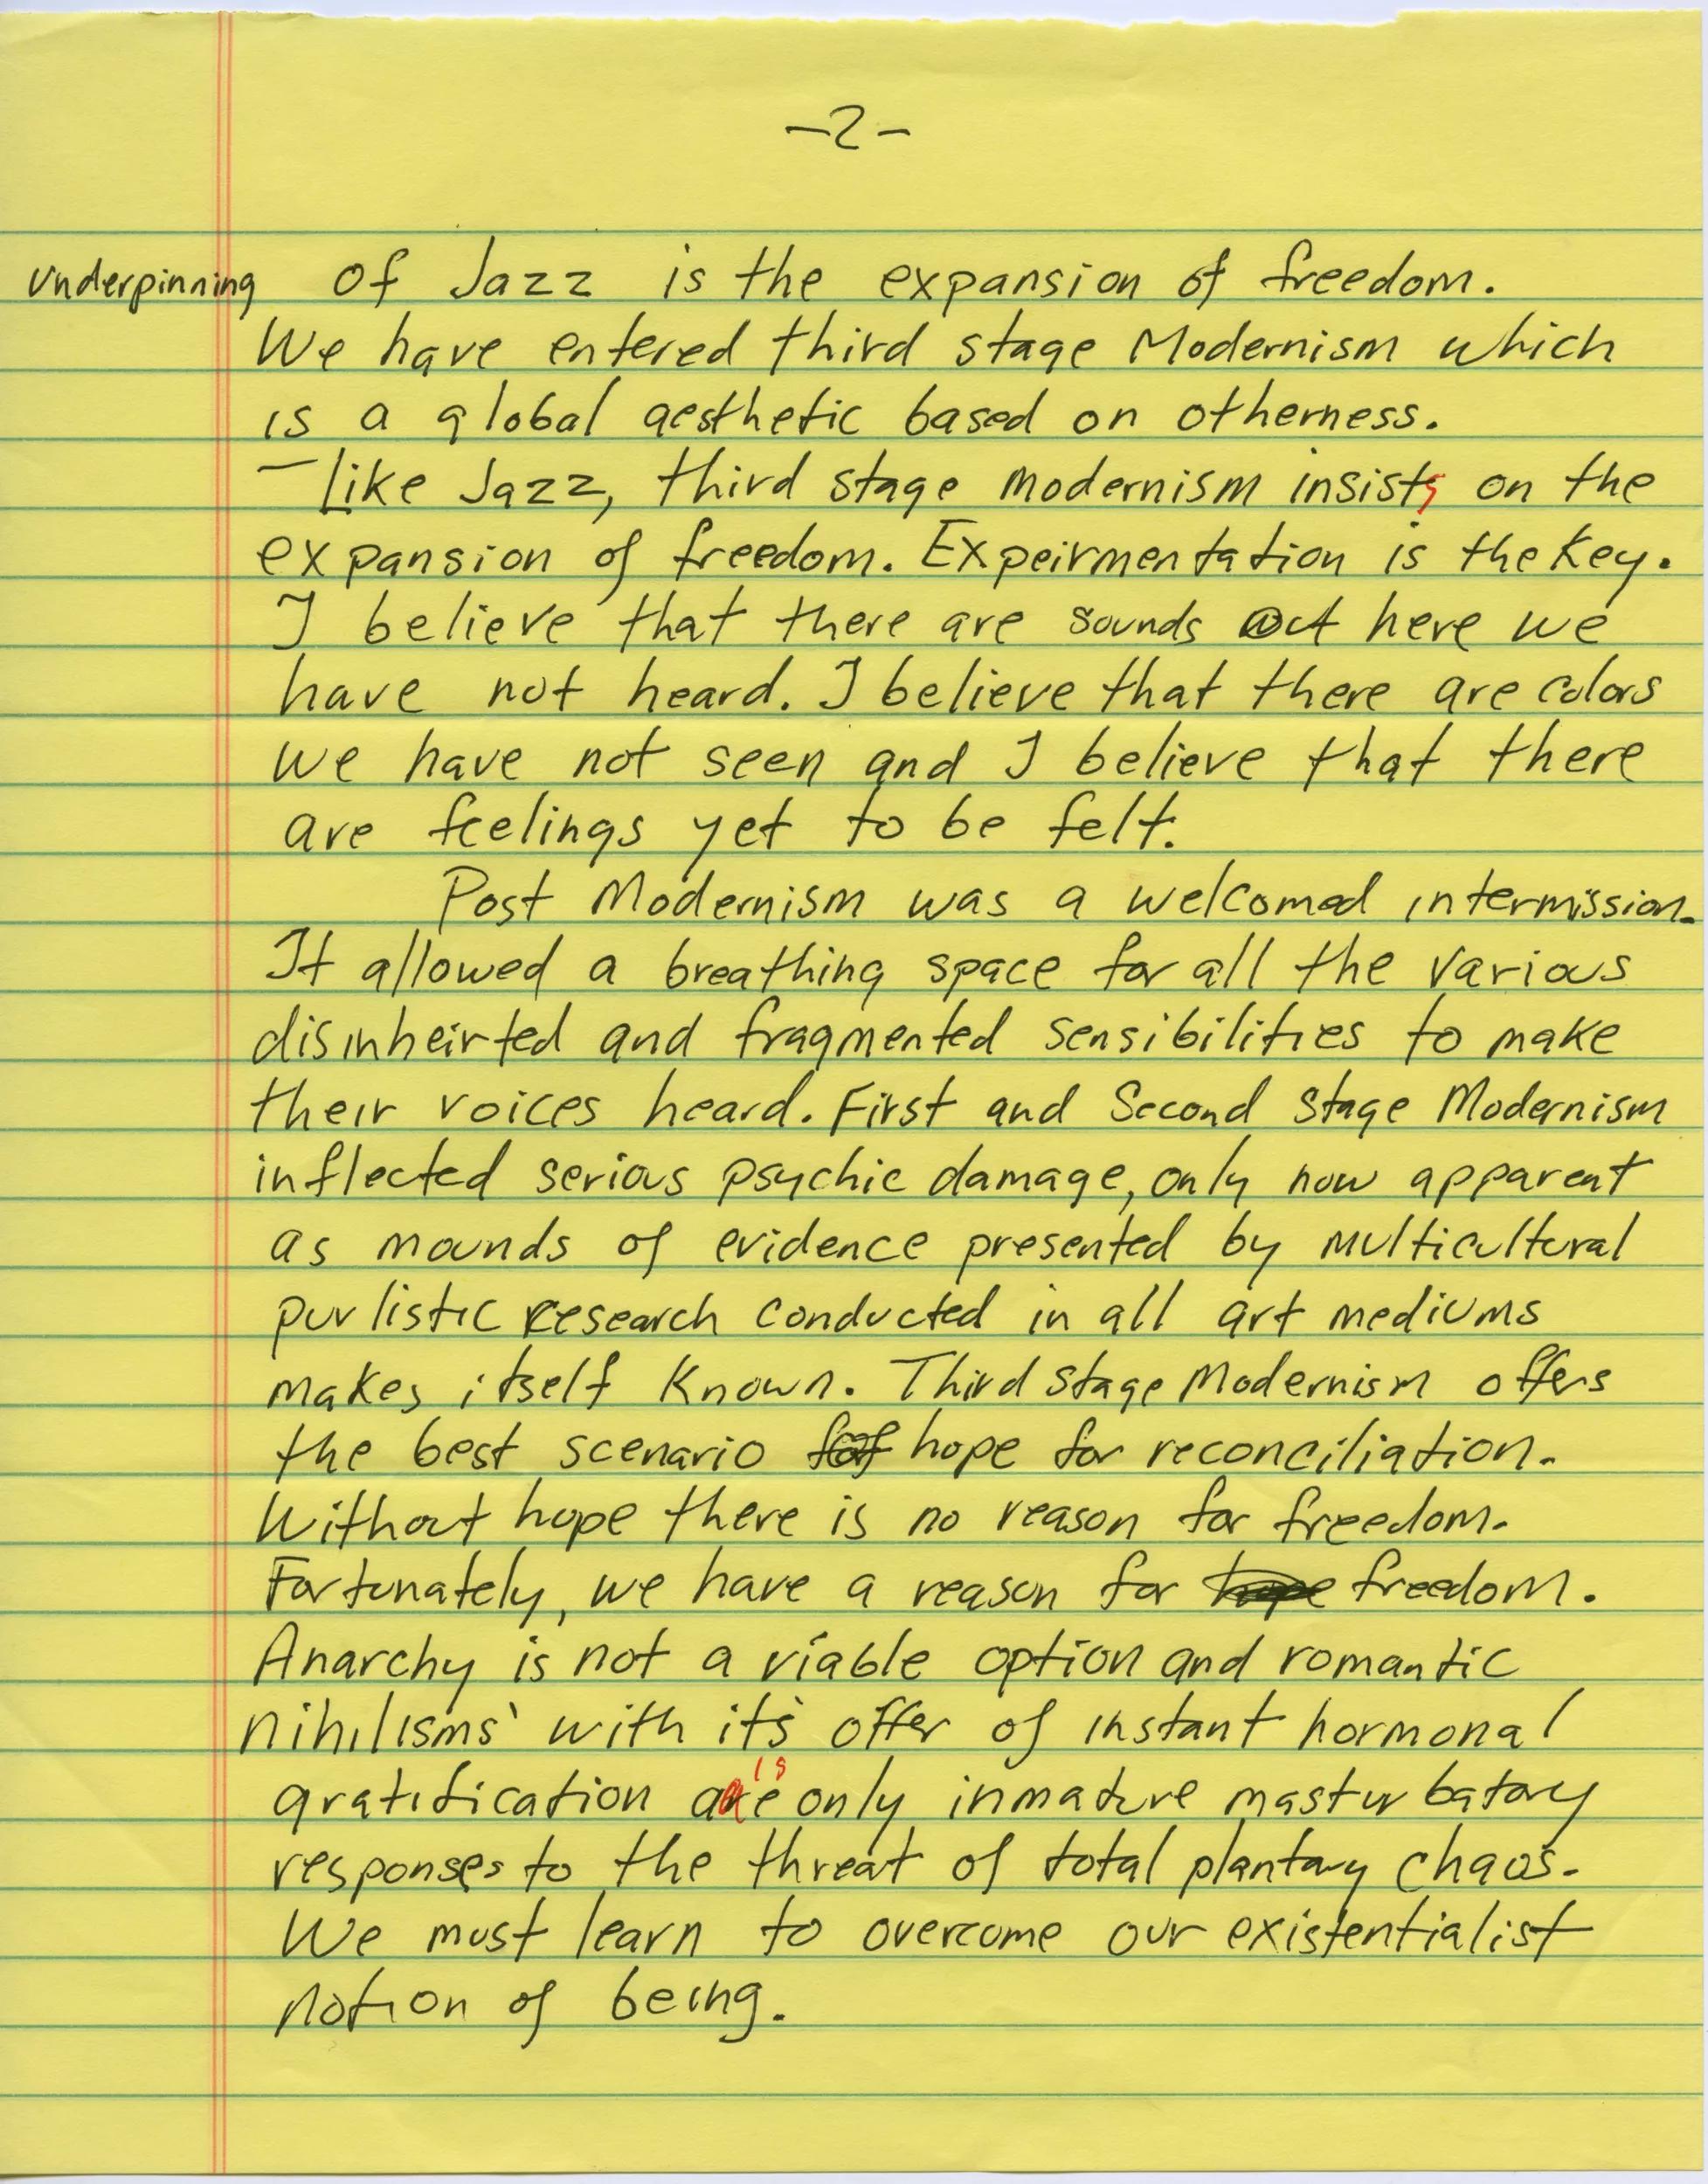 -2-
underpinning of Jazz is the expansion of freedom.
We have entered third stage Modernism which
is a global aesthetic based on otherness.
- Like Jazz, third stage modernism insists on the
expansion of freedom. Expeirmentation is the key.
I believe that there are sounds out here we
have not heard. I believe that there are colors
we have not seen and I believe that there
are feelings yet to be felt.
Post Modernism was a welcomed intermission.
It allowed a breathing space for all the various
disinheirted and fragmented sensibilities to make
their voices heard. First and Second Stage Modernism
inflected serious psychic damage, only now apparent
as mounds of evidence presented by multicultural
purlistic research conducted in all art mediums
makes itself known. Third stage Modernism offers
the best scenario hope for reconciliation.
Without hope there is no reason for freedom.
Fortunately, we have a reason for hope freedom.
Anarchy is not a viable option and romantic
nihilisms' with it's offer of instant hormonal
gratification are is only inmature masturbatory
responses to the threat of total plantary chaos.
We must learn to overcome our existentialist
notion of being.